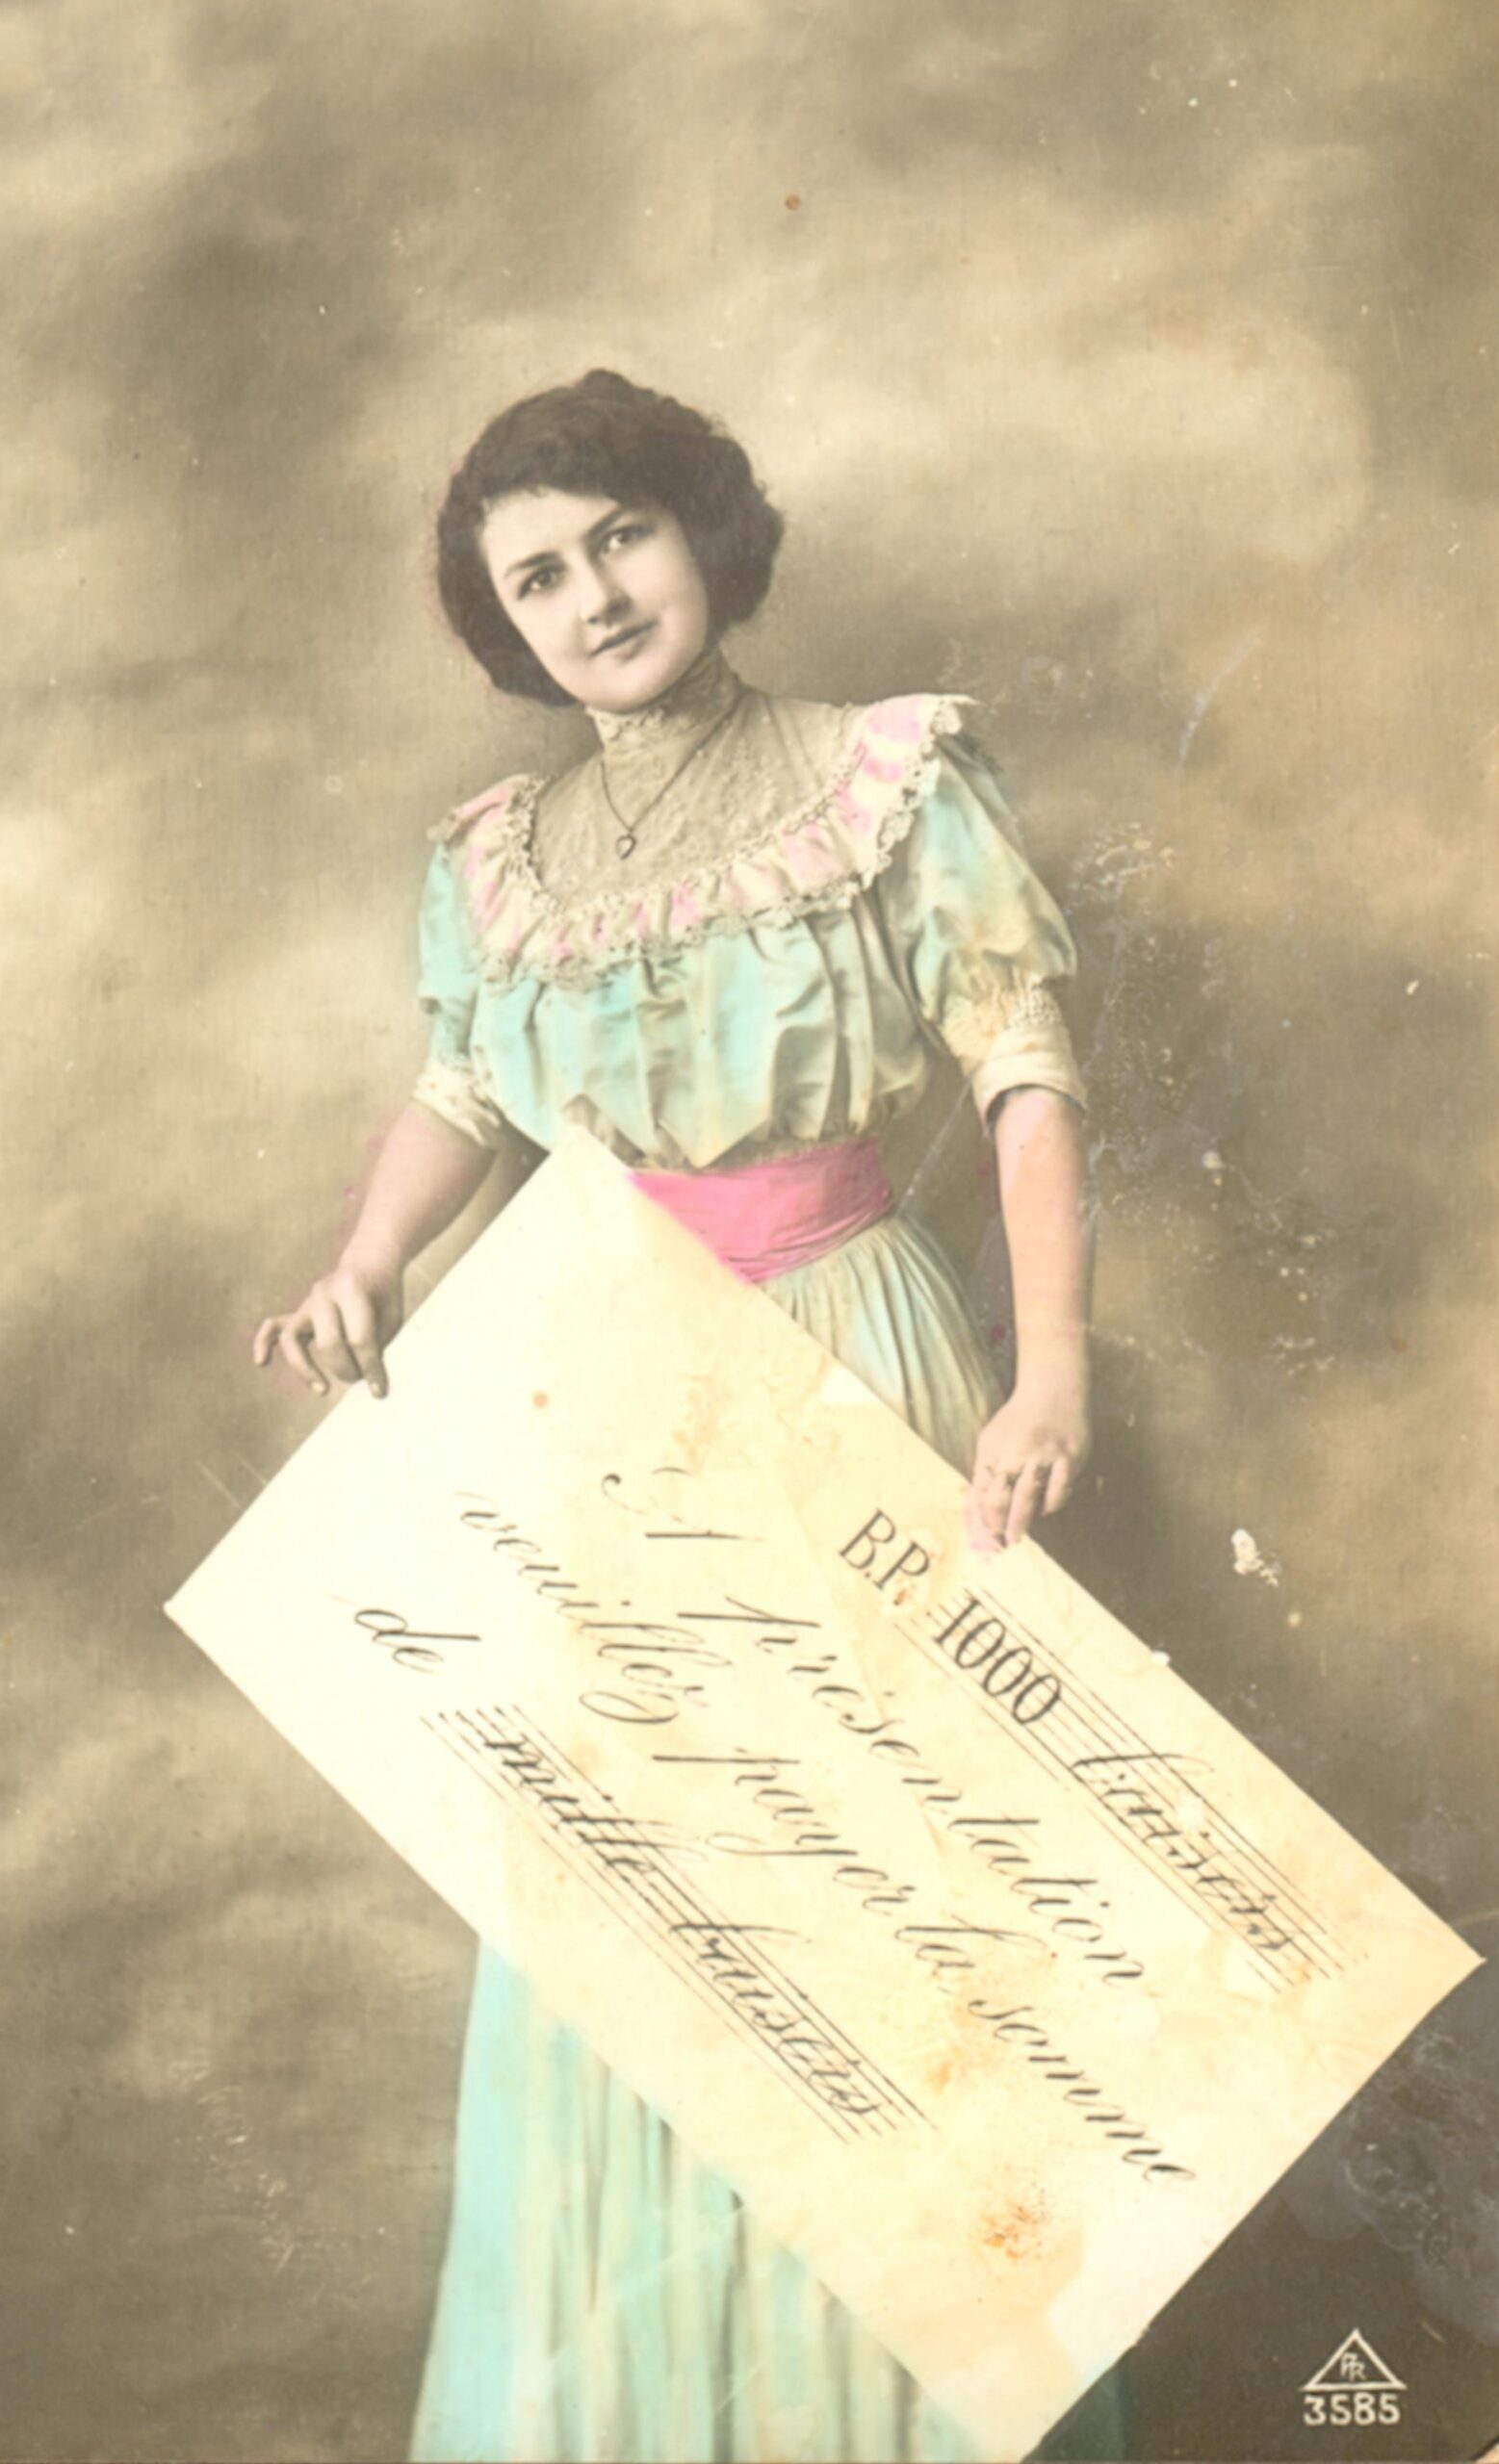 B.P. 1000 baisers
A présentation
veuillez payer la somme
de mille baisers
PR
3585